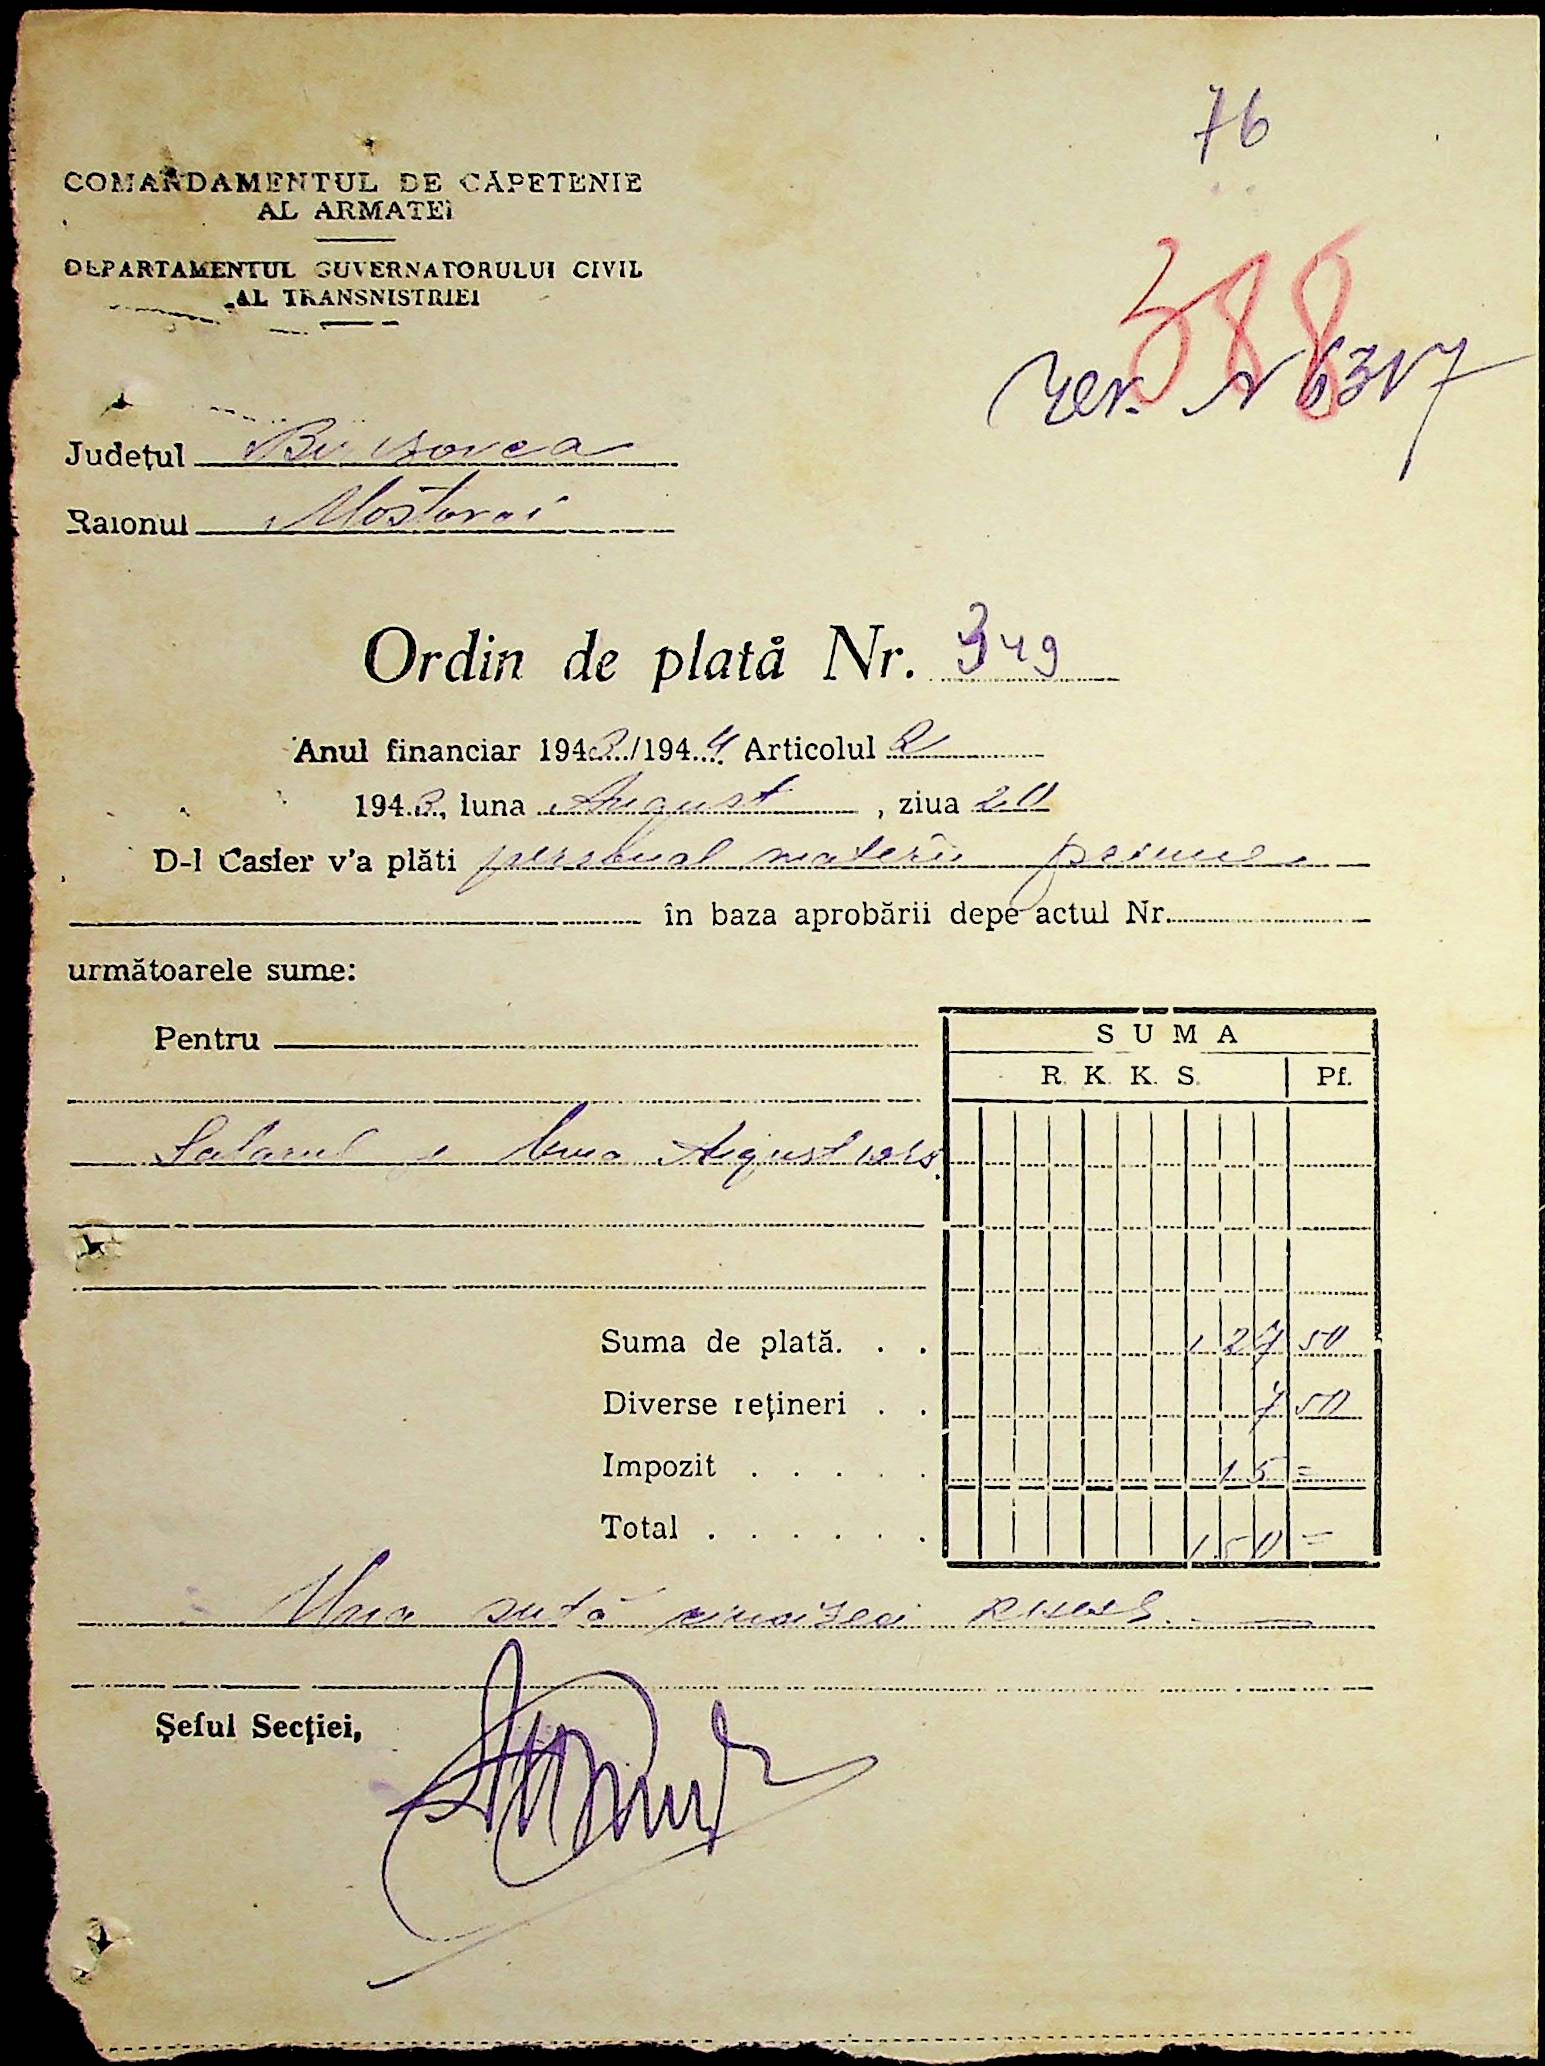 76
COMANDAMENTUL DE CĂPETENIE
AL ARMATEI
DEPARTAMENTUL GUVERNATORULUI CIVIL
AL TRANSNISTRIEI
388
Nr 6317
Județul
Raionul Mostovoi
Ordin de plată Nr. 349
Anul financiar 1943/1944 Articolul 2
1943, luna August, ziua 20
D-l Casier v'a plăti personal materii prime
în baza aprobării depe actul Nr.
următoarele sume:
Pentru
SUMA
R. K. K. S. Pf.
Salariul pe luna August 1943
Suma de plată. . . 127 50
Diverse rețineri . . 7 50
Impozit . . . . . 15 =
Total . . . . . . 150 =
Una sută cincizeci RKKS.
Șeful Secției,